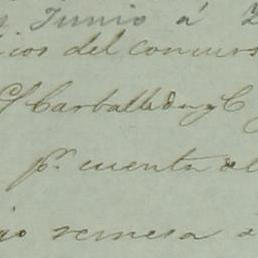 Junio á 2
cios del concurs
Carballeda y C
pr. cuenta de
remesa